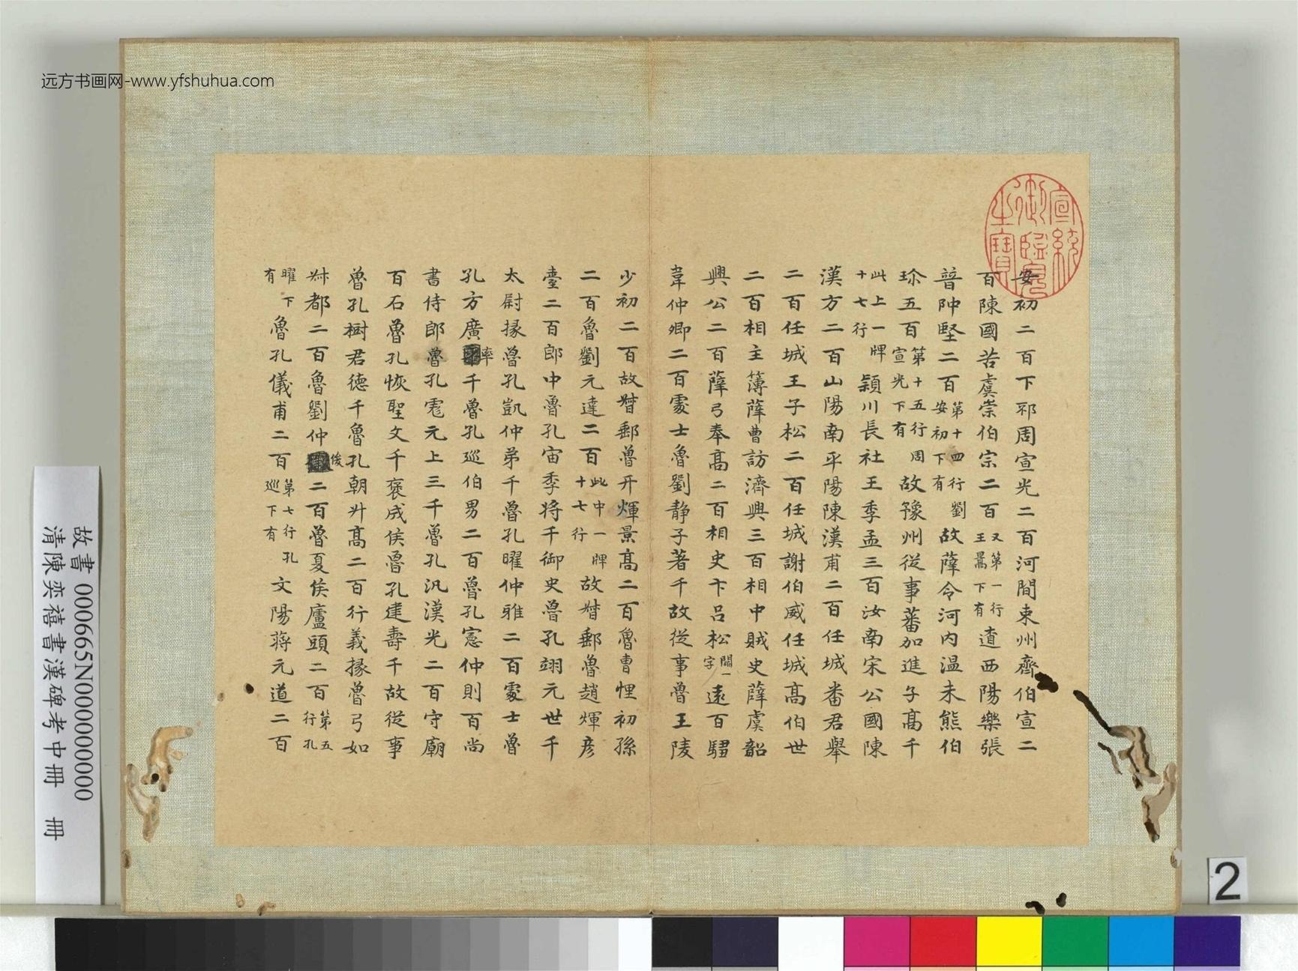 远方书画网-www.yfshuhua.com
宣統御覽之寶
安初二百下邳周宣光二百河間束州齊伯宣二
百陳國苦虞崇伯宗二百又第一行王暠下有遺西陽樂張
普仲堅二百第十四行劉安初下有故薛令河內溫朱熊伯
珍五百第十五行周宣光下有故豫州從事蕃加進子高千
此上一牌十七行潁川長社王季孟三百汝南宋公國陳
漢方二百山陽南平陽陳漢甫二百任城番君舉
二百任城王子松二百任城謝伯威任城高伯世
二百相主薄薛曹訪濟興三百相中賊史薛虞韶
興公二百薛弓奉高二百相史卞呂松闕一字遠百騶
韋仲卿二百處士魯劉静子著千故從事魯王陵
少初二百故督郵魯开煇景高二百魯曹悝初孫
二百魯劉元達二百此中一牌十七行故督郵魯趙煇彥
臺二百郎中魯孔宙季將千御史魯孔翊元世千
太尉掾魯孔凱仲弟千魯孔曜仲雅二百處士魯
孔方廣率千魯孔巡伯男二百魯孔憲仲則百尚
書侍郎魯孔彪元上三千魯孔汎漢光二百守廟
百石魯孔恢聖文千褒成侯魯孔建壽千故從事
魯孔樹君德千魯孔朝升高二百行義掾魯弓如
叔都二百魯劉仲俊二百魯夏侯廬頭二百第五行孔
曜下有魯孔儀甫二百第七行孔巡下有文陽蔣元道二百
故書 000665N000000000
清陳奕禧書漢碑考 中冊 冊
2